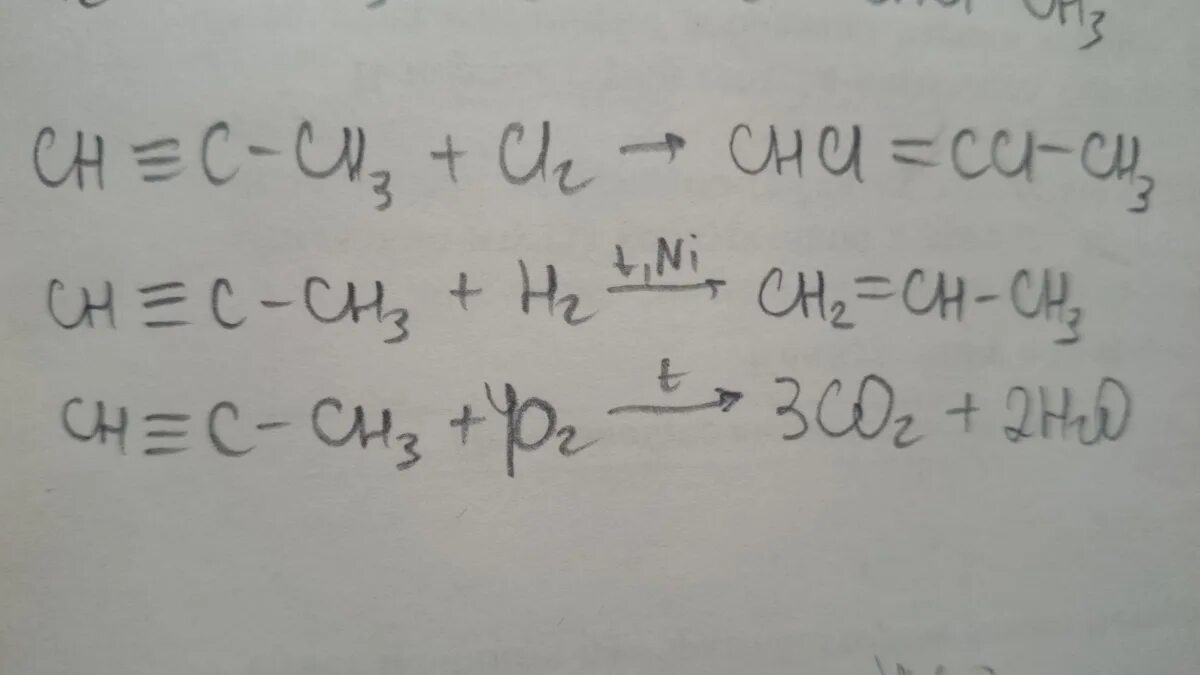 CH₃
CH ≡ C - CH₃ + Cl₂ → CHCl = CCl - CH₃
CH ≡ C - CH₃ + H₂ t, Ni → CH₂ = CH - CH₃
CH ≡ C - CH₃ + 4O₂ t → 3CO₂ + 2H₂O